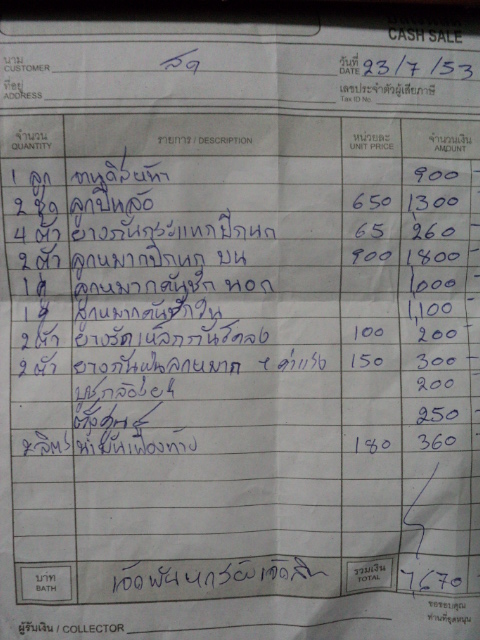 CASH SALE
นาม CUSTOMER สด วันที่ DATE 23/7/53
ที่อยู่ ADDRESS เลขประจำตัวผู้เสียภาษี Tax ID No.
จำนวน QUANTITY รายการ / DESCRIPTION หน่วยละ UNIT PRICE จำนวนเงิน AMOUNT
1 ลูก 900 -
2 ชุด ลูกปืนล้อ 650 1300 -
4 ตัว ยางกันกระแทกปีกนก 65 260 -
2 ตัว ลูกหมากปีกนก บน 900 1800 -
1 คู่ ลูกหมากคันชัก นอก 1,000 -
1 คู่ ลูกหมากคันชักใน 1,100 -
2 ตัว ยางรัดเหล็กกันโคลง 100 200 -
2 ตัว ยางกันฝุ่นลูกหมาก + ค่าแรง 150 300 -
200 -
ตั้งศูนย์ 250 -
2 ลิตร น้ำมันเฟืองท้าย 180 360 -
บาท BATH เจ็ดพันหกร้อยเจ็ดสิบ รวมเงิน TOTAL 7,670 -
ขอขอบคุณ
ผู้รับเงิน / COLLECTOR ท่านที่อุดหนุน